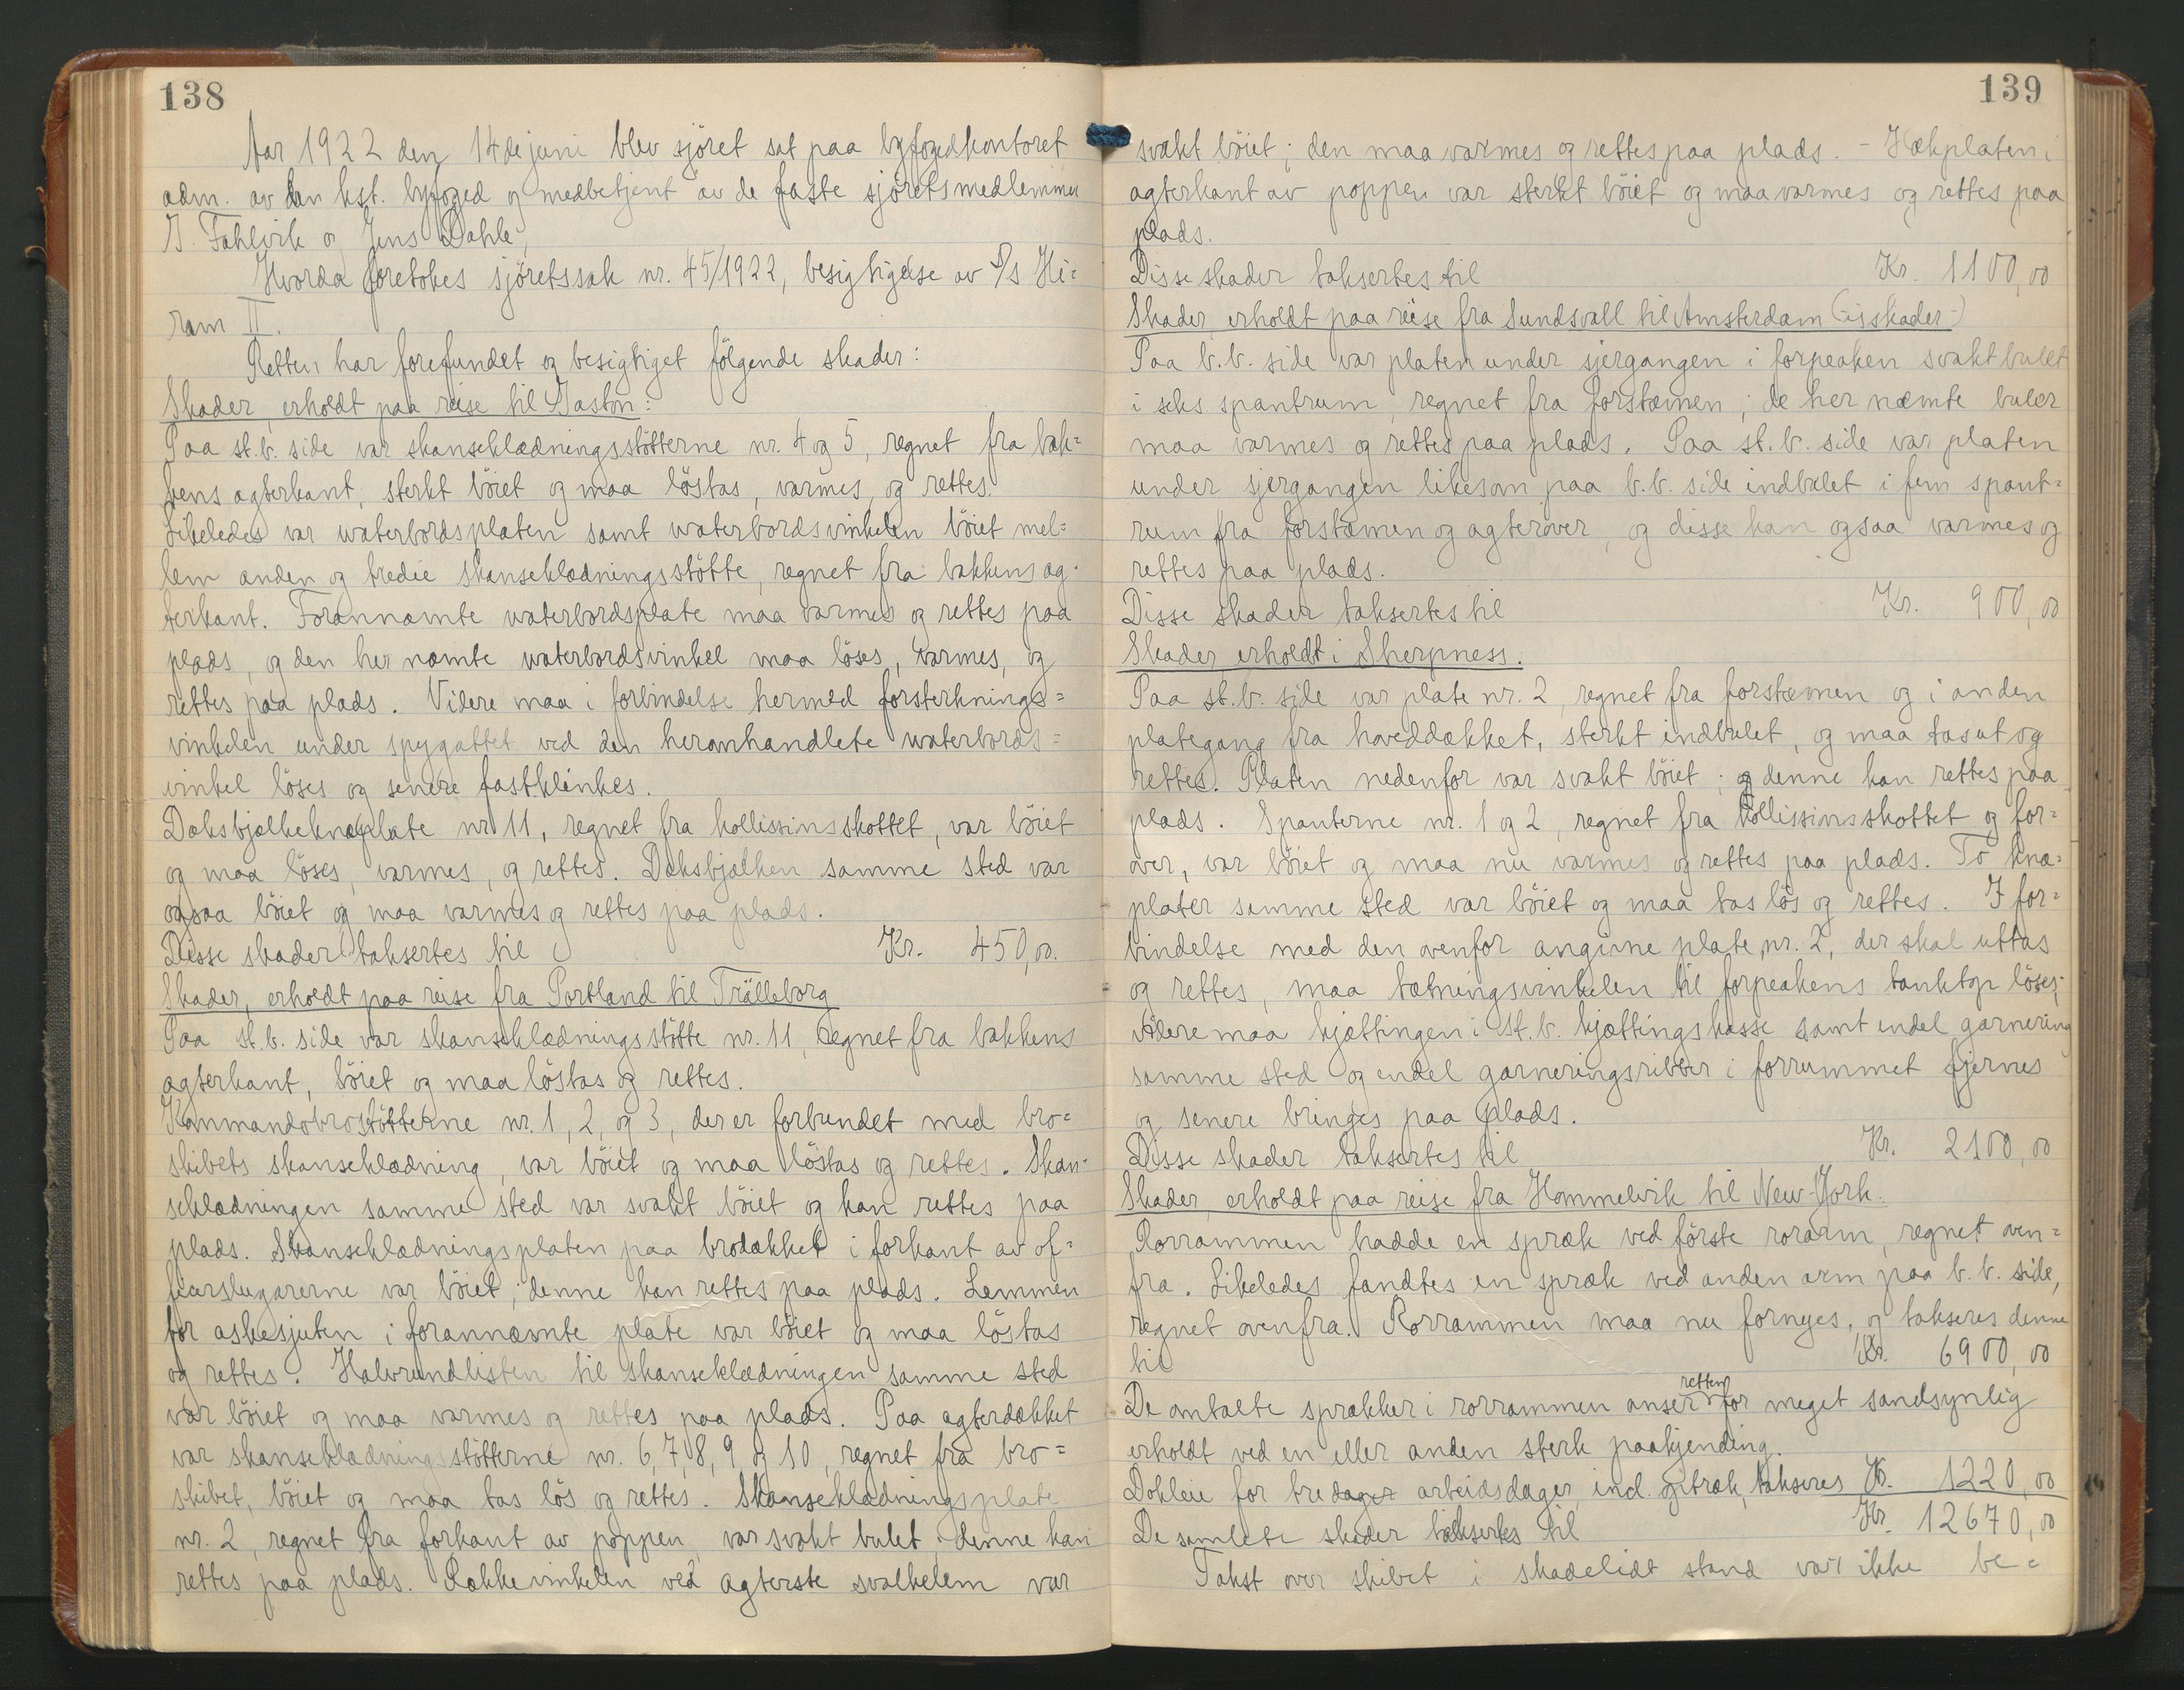 138
Aar 1922 den 14de juni blev sjöret sat paa byfogedkontoret
adm. av den kst. byfoged og medbetjent av de faste sjöretsmedlemmer
J. Fahlvik og Jens Dahle,
Hvorda foretokes sjöretssak nr. 45/1922, besigtigelse av S/s Hi=
ram II.
Retten har forefundet og besigtiget fölgende skader:
Skader, erholdt paa reise til Gaston:
Paa st.b. side var skanseklædningsstötterne nr. 4 og 5, regnet fra bak=
kens agterkant, sterkt böiet og maa löstas, varmes, og rettes.
Likeledes var waterbordsplaten samt waterbordsvinkelen böiet mel=
lem anden og tredie skanseklædningsstötte, regnet fra bakkens ag=
terkant. Forannæmte waterbordsplate maa varmes og rettes paa
plads, og den her næmte waterbordsvinkel maa löses, varmes, og
rettes paa plads. Videre maa i forbindelse hermed forsterknings=
vinkelen under spygattet ved den heromhandlete waterbords=
vinkel löses og senere fastklinkes.
Dæksbjælkeknæplate nr 11, regnet fra kollissinsskottet, var böiet
og maa löses, varmes, og rettes. Dæksbjælken samme sted var
ogsaa böiet og maa varmes og rettes paa plads.
Disse skader taksertes til Kr. 450,00.
Skader, erholdt paa reise fra Portland til Trälleborg
Paa st.b. side var skanseklædningsstötte nr. 11, regnet fra bakkens
agterkant, böiet og maa löstas og rettes.
Kommandobrostötterne nr. 1, 2, og 3, der er forbundet med bro=
skibets skanseklædning, var böiet og maa löstas og rettes. Skan=
seklædningen samme sted var svakt böiet og kan rettes paa
plads. Skanseklædningsplaten paa brodækket i forkant av of=
ficerslugarerne var böiet; denne kan rettes paa plads. Lemmen
for askesjuten i forannæmte plate var böiet og maa löstas
og rettes. Halvrundlisten til skanseklædningen samme sted
var böiet og maa varmes og rettes paa plads. Paa agterdækket
var skanseklædningsstötterne nr. 6, 7, 8, 9 og 10, regnet fra bro=
skibet, böiet og maa tas lös og rettes. Skanseklædningsplate
nr. 2, regnet fra forkant av poppen, var svakt bulet; denne kan
rettes paa plads. Rækkevinkelen ved agterste svalkelem var
139
svakt böiet; den maa varmes og rettes paa plads. - Hækplaten i
agterkant av poppen var sterkt böiet og maa varmes og rettes paa
plads.
Disse skader taksertes til Kr. 1100,00
Skader, erholdt paa reise fra Sundsvall til Amsterdam (isskader)
Paa b.b. side var platen under sjergangen i forpeaken svakt bulet
i seks spantrum, regnet fra forstævnen; de her næmte buler
maa varmes og rettes paa plads. Paa st.b. side var platen
under sjergangen likesom paa b.b. side indbulet i fem spant=
rum fra forstævnen og agterover, og disse kan ogsaa varmes og
rettes paa plads.
Disse skader taksertes til Kr. 900,00
Skader erholdt i Sherpness.
Paa st.b. side var plate nr. 2, regnet fra forstævnen og i anden
plategang fra hoveddækket, sterkt indbulet, og maa tas ut og
rettes. Platen nedenfor var svakt böiet; og denne kan rettes paa
plads. Spanterne nr. 1 og 2, regnet fra kollissinsskottet og for=
over, var böiet og maa nu varmes og rettes paa plads. To knæ=
plater samme sted var böiet og maa tas lös og rettes. I for=
bindelse med den ovenfor angivne plate, nr. 2, der skal uttas
og rettes, maa tætningsvinkelen til forpeakens tanktop löses;
videre maa kjættingen i st.b. kjættingskasse samt endel garnering
samme sted og endel garneringsribber i forrummet fjernes
og senere bringes paa plads.
Disse skader taksertes til Kr. 2100,00
Skader, erholdt paa reise fra Hommelvik til New-York.
Rorrammen hadde en spræk ved förste rorarm, regnet oven=
fra. Likeledes fandtes en spræk ved anden arm paa b.b. side,
regnet ovenfra. Rorrammen maa nu fornyes, og takseres denne
til Kr. 6900,00
De omtalte sprækker i rorrammen anser retten for meget sandsynlig
erholdt ved en eller anden sterk paakjending.
Dokleie for tre dager arbeidsdager, incl. optræk, takseres Kr. 1220,00
De samlete skader taksertes til Kr. 12670,00
Takst over skibet i skadelidt stand var ikke be=